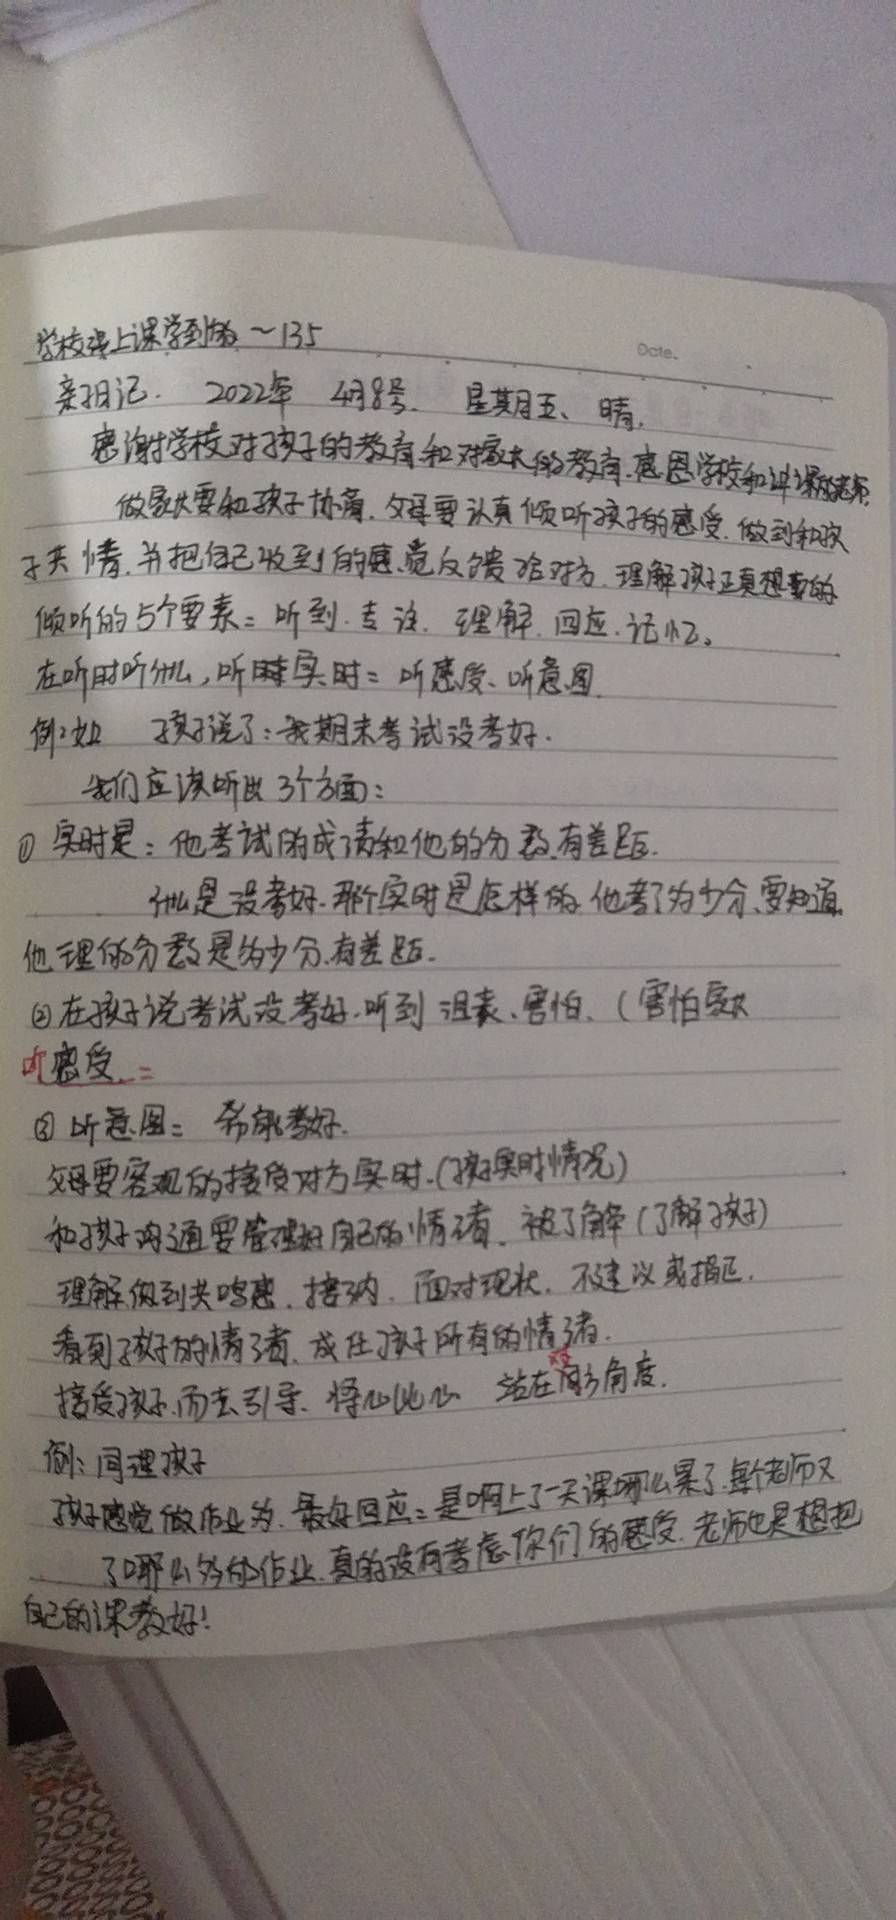 学校线上课学到的～135
Date.
亲子日记. 2022年 4月8号. 星期五、晴.
感谢学校对孩子的教育和对家长的教育.感恩学校和讲课的老师.
做家长要和孩子协商.父母要认真倾听孩子的感受.做到和孩
子共情.并把自己收到的感觉反馈给对方.理解孩子正真想要的
倾听的5个要素=听到.专注.理解.回应.记忆。
在听时听什么,听实时=听感受、听意图
例如 孩子说了:我期末考试没考好.
我们应该听出3个方面:
① 实时是:他考试的成绩和他的分数有差距.
什么是没考好.那个实时是怎样的 他考了多少分、要知道
他理的分数是多少分.有差距.
②在孩子说考试没考好.听到沮丧、害怕、(害怕家长
听感受.=
③ 听意图= 希能考好.
父母要客观的接受对方实时.(孩子实时情况)
和孩子沟通要管理好自己的情绪.被了解(了解孩子)
理解做到共鸣感.接纳.面对现状.不建议或指正.
看到孩子的情绪.成住孩子所有的情绪.
接受孩子.而去引导.将心比心 站在对方角度.
例:同理孩子
孩子感觉做作业多.最好回应=是啊上了一天课那么累了.每个老师又
了那么多的作业.真的没有考虑你们的感受.老师也是想把
自己的课教好!